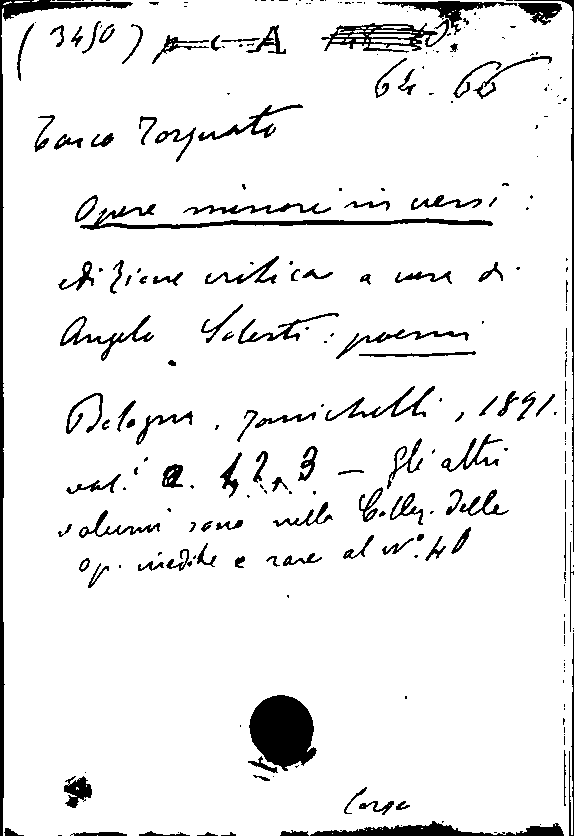 (3450)
64. 66
Tasso Torquato
Opere minori in versi:
edizione critica a cura di
Angelo Solerti: poemi
Bologna, Zanichelli, 1891.
vol.i 2. 1, 2, 3 — gli altri
volumi sono nella Collez. delle
op. inedite e rare al N.º 40
Corso